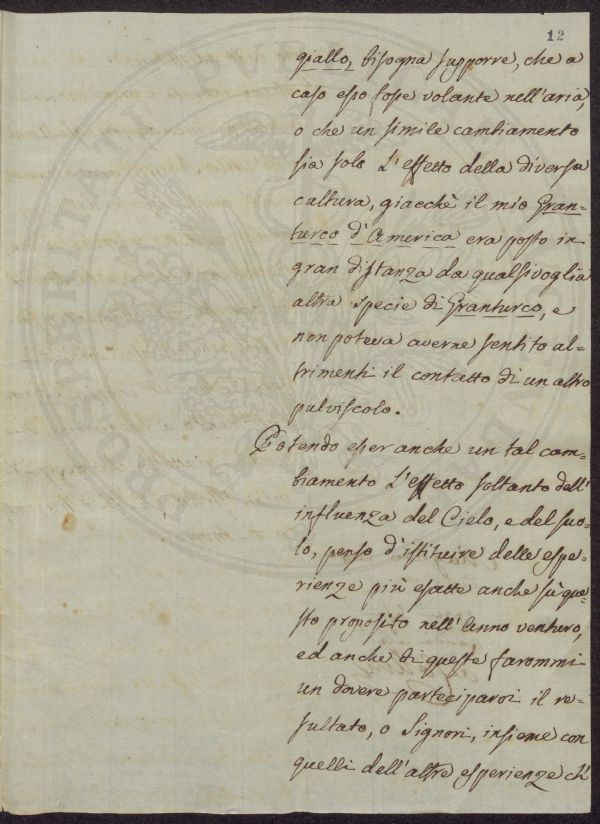 12
giallo, bisogna supporre, che a
caso esso fosse volante nell'aria,
o che un simile cambiamento
sia solo l'effetto della diversa
cultura, giacchè il mio Gran=
turco d'America era posto in
gran distanza da qualsivoglia
altra specie di Granturco, e
non poteva averne sentito al=
trimenti il contatto di un altro
pulviscolo.
Potendo esser anche un tal cam=
biamento l'effetto soltanto dell'
influenza del Cielo, e del suo=
lo, penso d'istituire delle espe=
rienze più esatte anche sù que=
sto proposito nell'Anno venturo,
ed anche di queste farommi
un dovere parteciparvi il re=
sultato, o Signori, insieme con
quelli dell'altre esperienze ch'